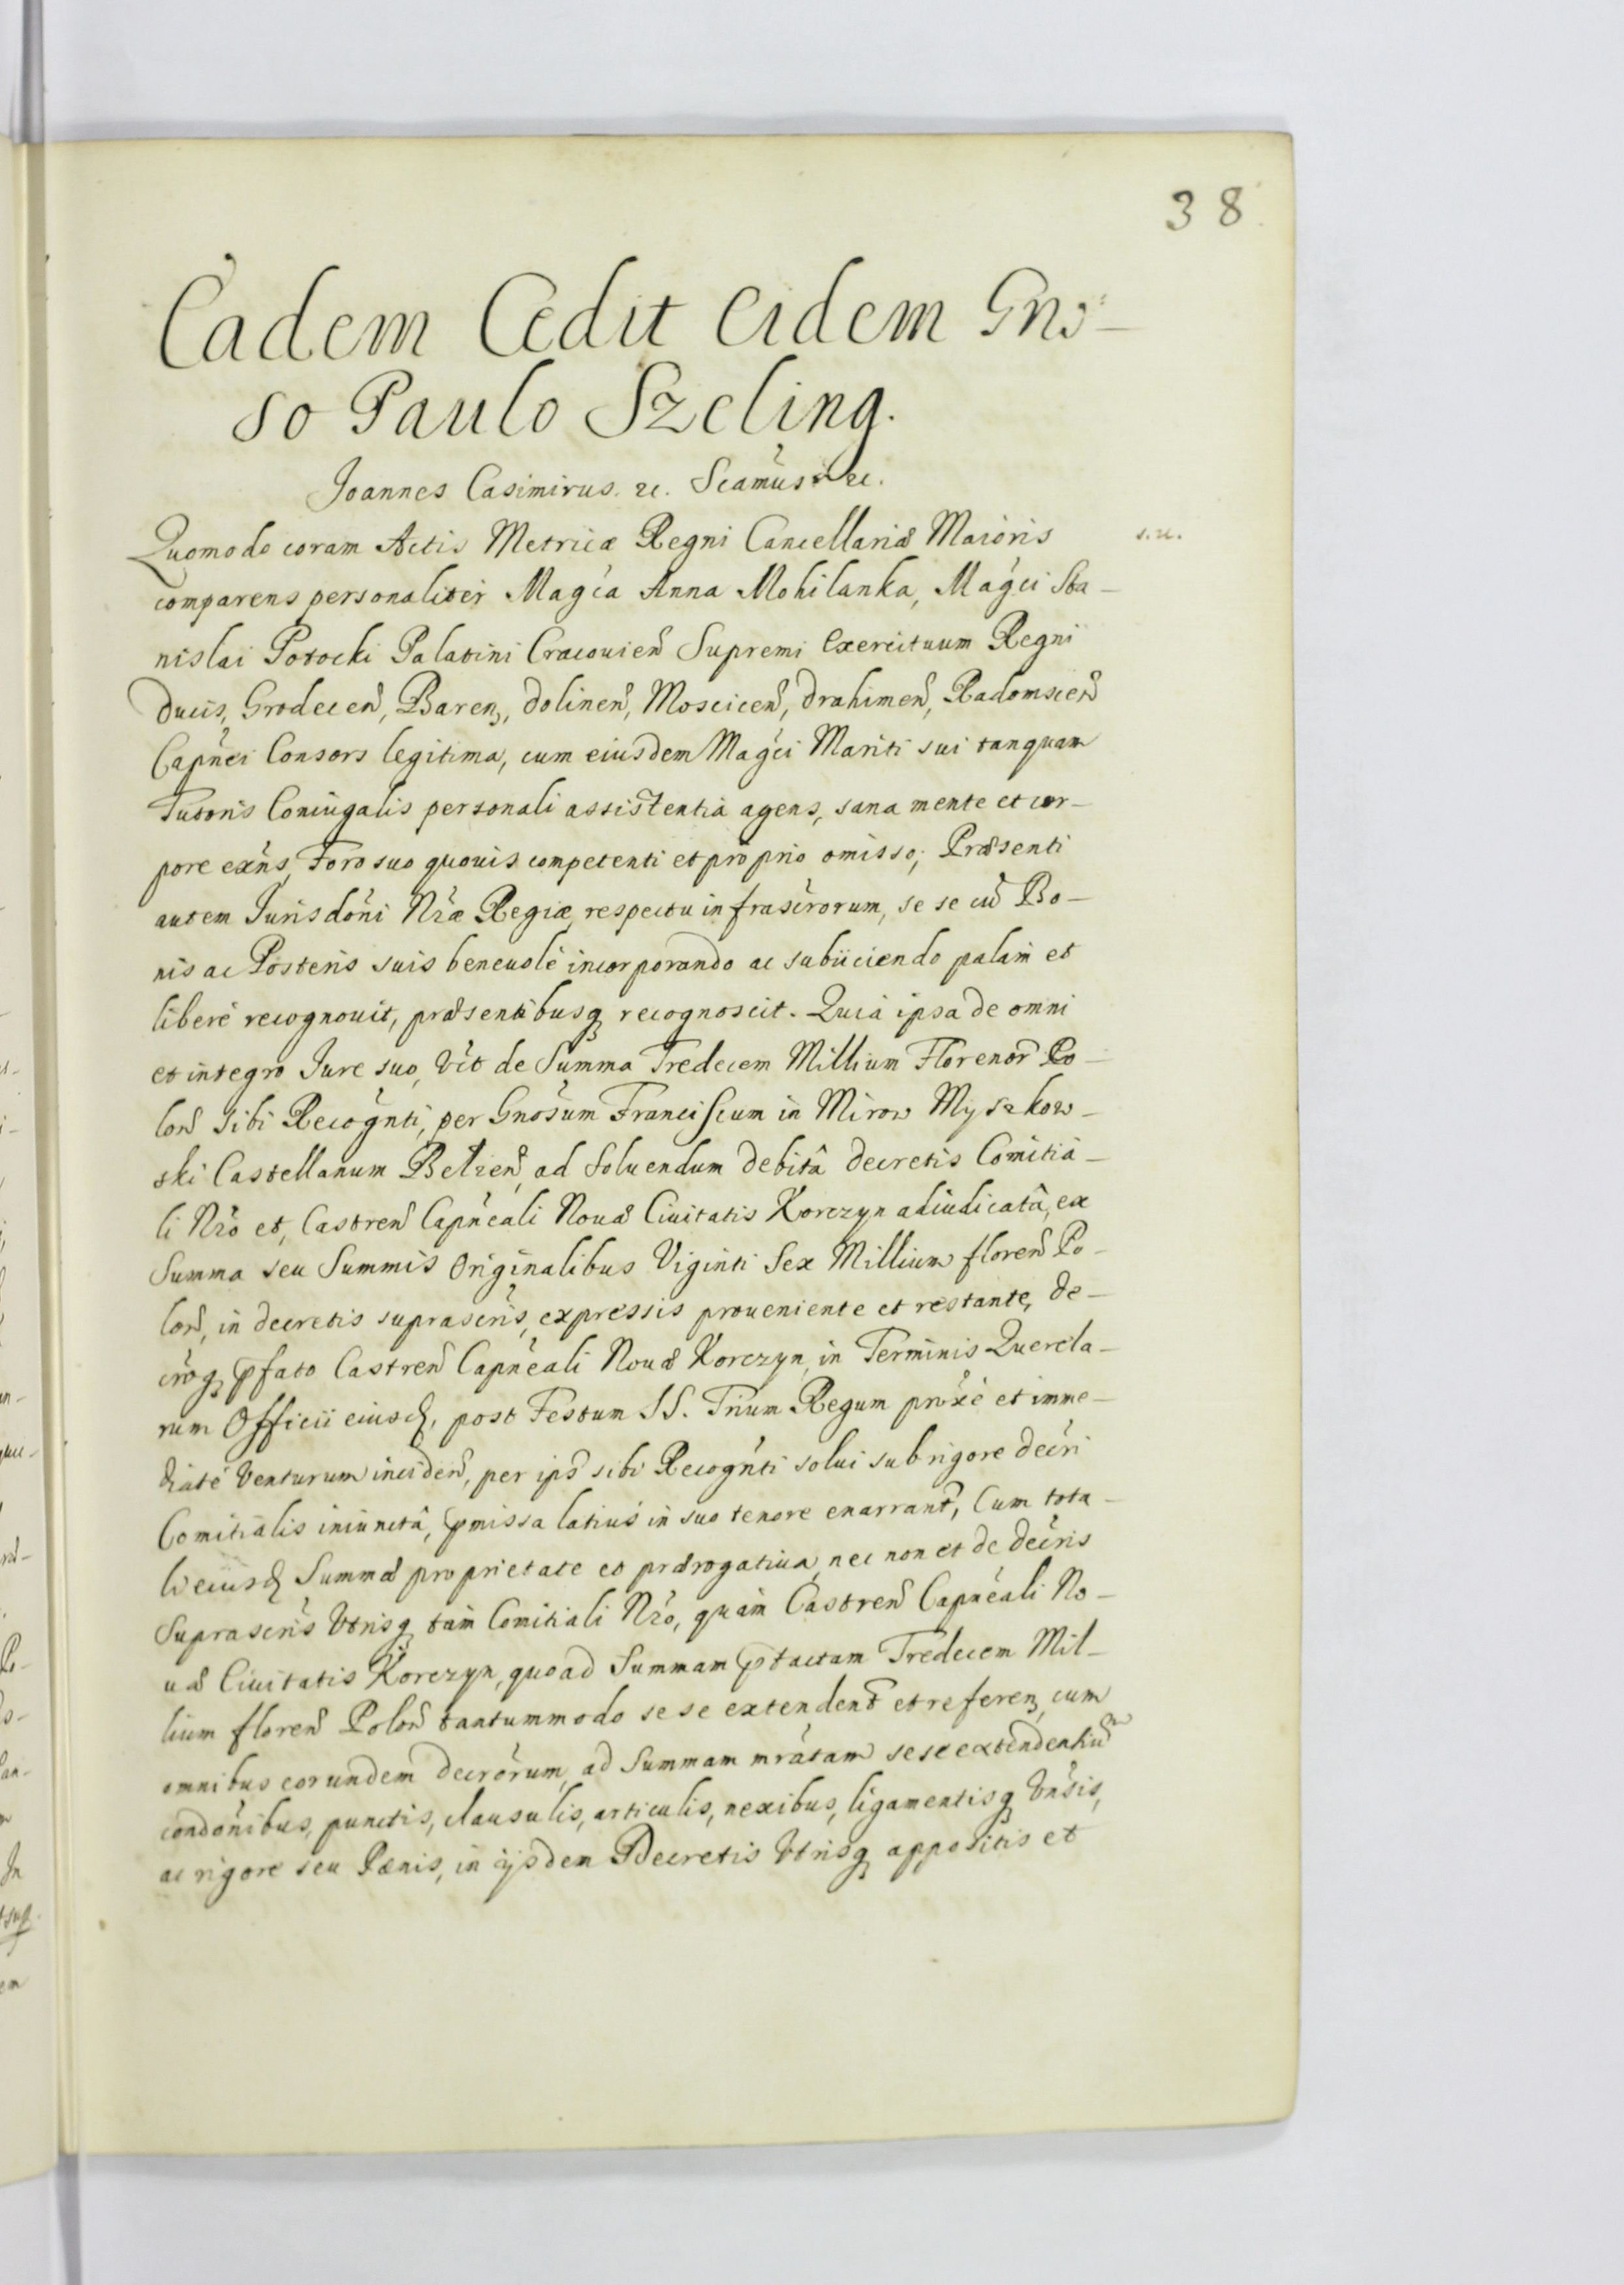 38
Eadem Cedit Eidem Gno-
so Paulo Szeling.
Joannes Casimirus. etc. Seamus etc.
Quomodo coram Actis Metricæ Regni Cancellariæ Maioris
s.n.
comparens personaliter Magca Anna Mohilanka, Magci Sta-
nislai Potocki Palatini Cracouien Supremi Exercituum Regni
Ducis, Grodecen, Baren, Dolinen, Moscicen, Drahimen, Radomscen
Capnei Consors legitima, cum eiusdem Magci Mariti sui tanquam
Tutoris Coniugalis personali assistentia agens, sana mente et cor-
pore exns, Foro suo quouis competenti et proprio omisso; Præsenti
autem Jurisdoni Nræ Regiæ, respectu infrascrorum, se se cu Bo-
nis ac Posteris suis beneuole incorporando ac subiiciendo palam et
libere recognouit, præsentibusq recognoscit. Quia ipsa de omni
et integro Jure suo, vet de Summa Tredecem Millium Florenor Po-
lon sibi Recognti, per Gnosum Franciscum in Mirow Myszkow-
ski Castellanum Belzen, ad Soluendum debitâ decretis Comitia-
li Nro et, Castren Capneali Nouæ Ciuitatis Korczyn adiudicatâ, ex
Summa seu Summis Originalibus Viginti Sex Millium floren Po-
lon, in decretis suprascris, expressis proueniente et restante, de-
croq pfato Castren Capneali Nouæ Korczyn, in Terminis Querela-
rum Officii eiusd, post Festum SS. Trium Regum proxe et imme-
diate Venturum inciden, per ips sibi Recognti solui sub rigore decri
Comitialis iniunctâ, pmissa latius in suo tenore enarrant, Cum tota
li eiusd Summæ proprietate et prærogatiua, nec non et de decris
Suprascris Vtrisq tam Comitiali Nro, quam Castren Capneali No-
uæ Ciuitatis Korczyn, quoad Summam ptactam Tredecem Mil-
lium floren Polon tantummodo se se extendent et referen, cum
omnibus eorundem decrorum, ad Summam mratam sese extendentiu
condonibus, punctis, clausulis, articulis, nexibus, ligamentisq Vnsis,
ac rigore seu Pœnis, in ijsdem Decretis Vtrisq appositis et